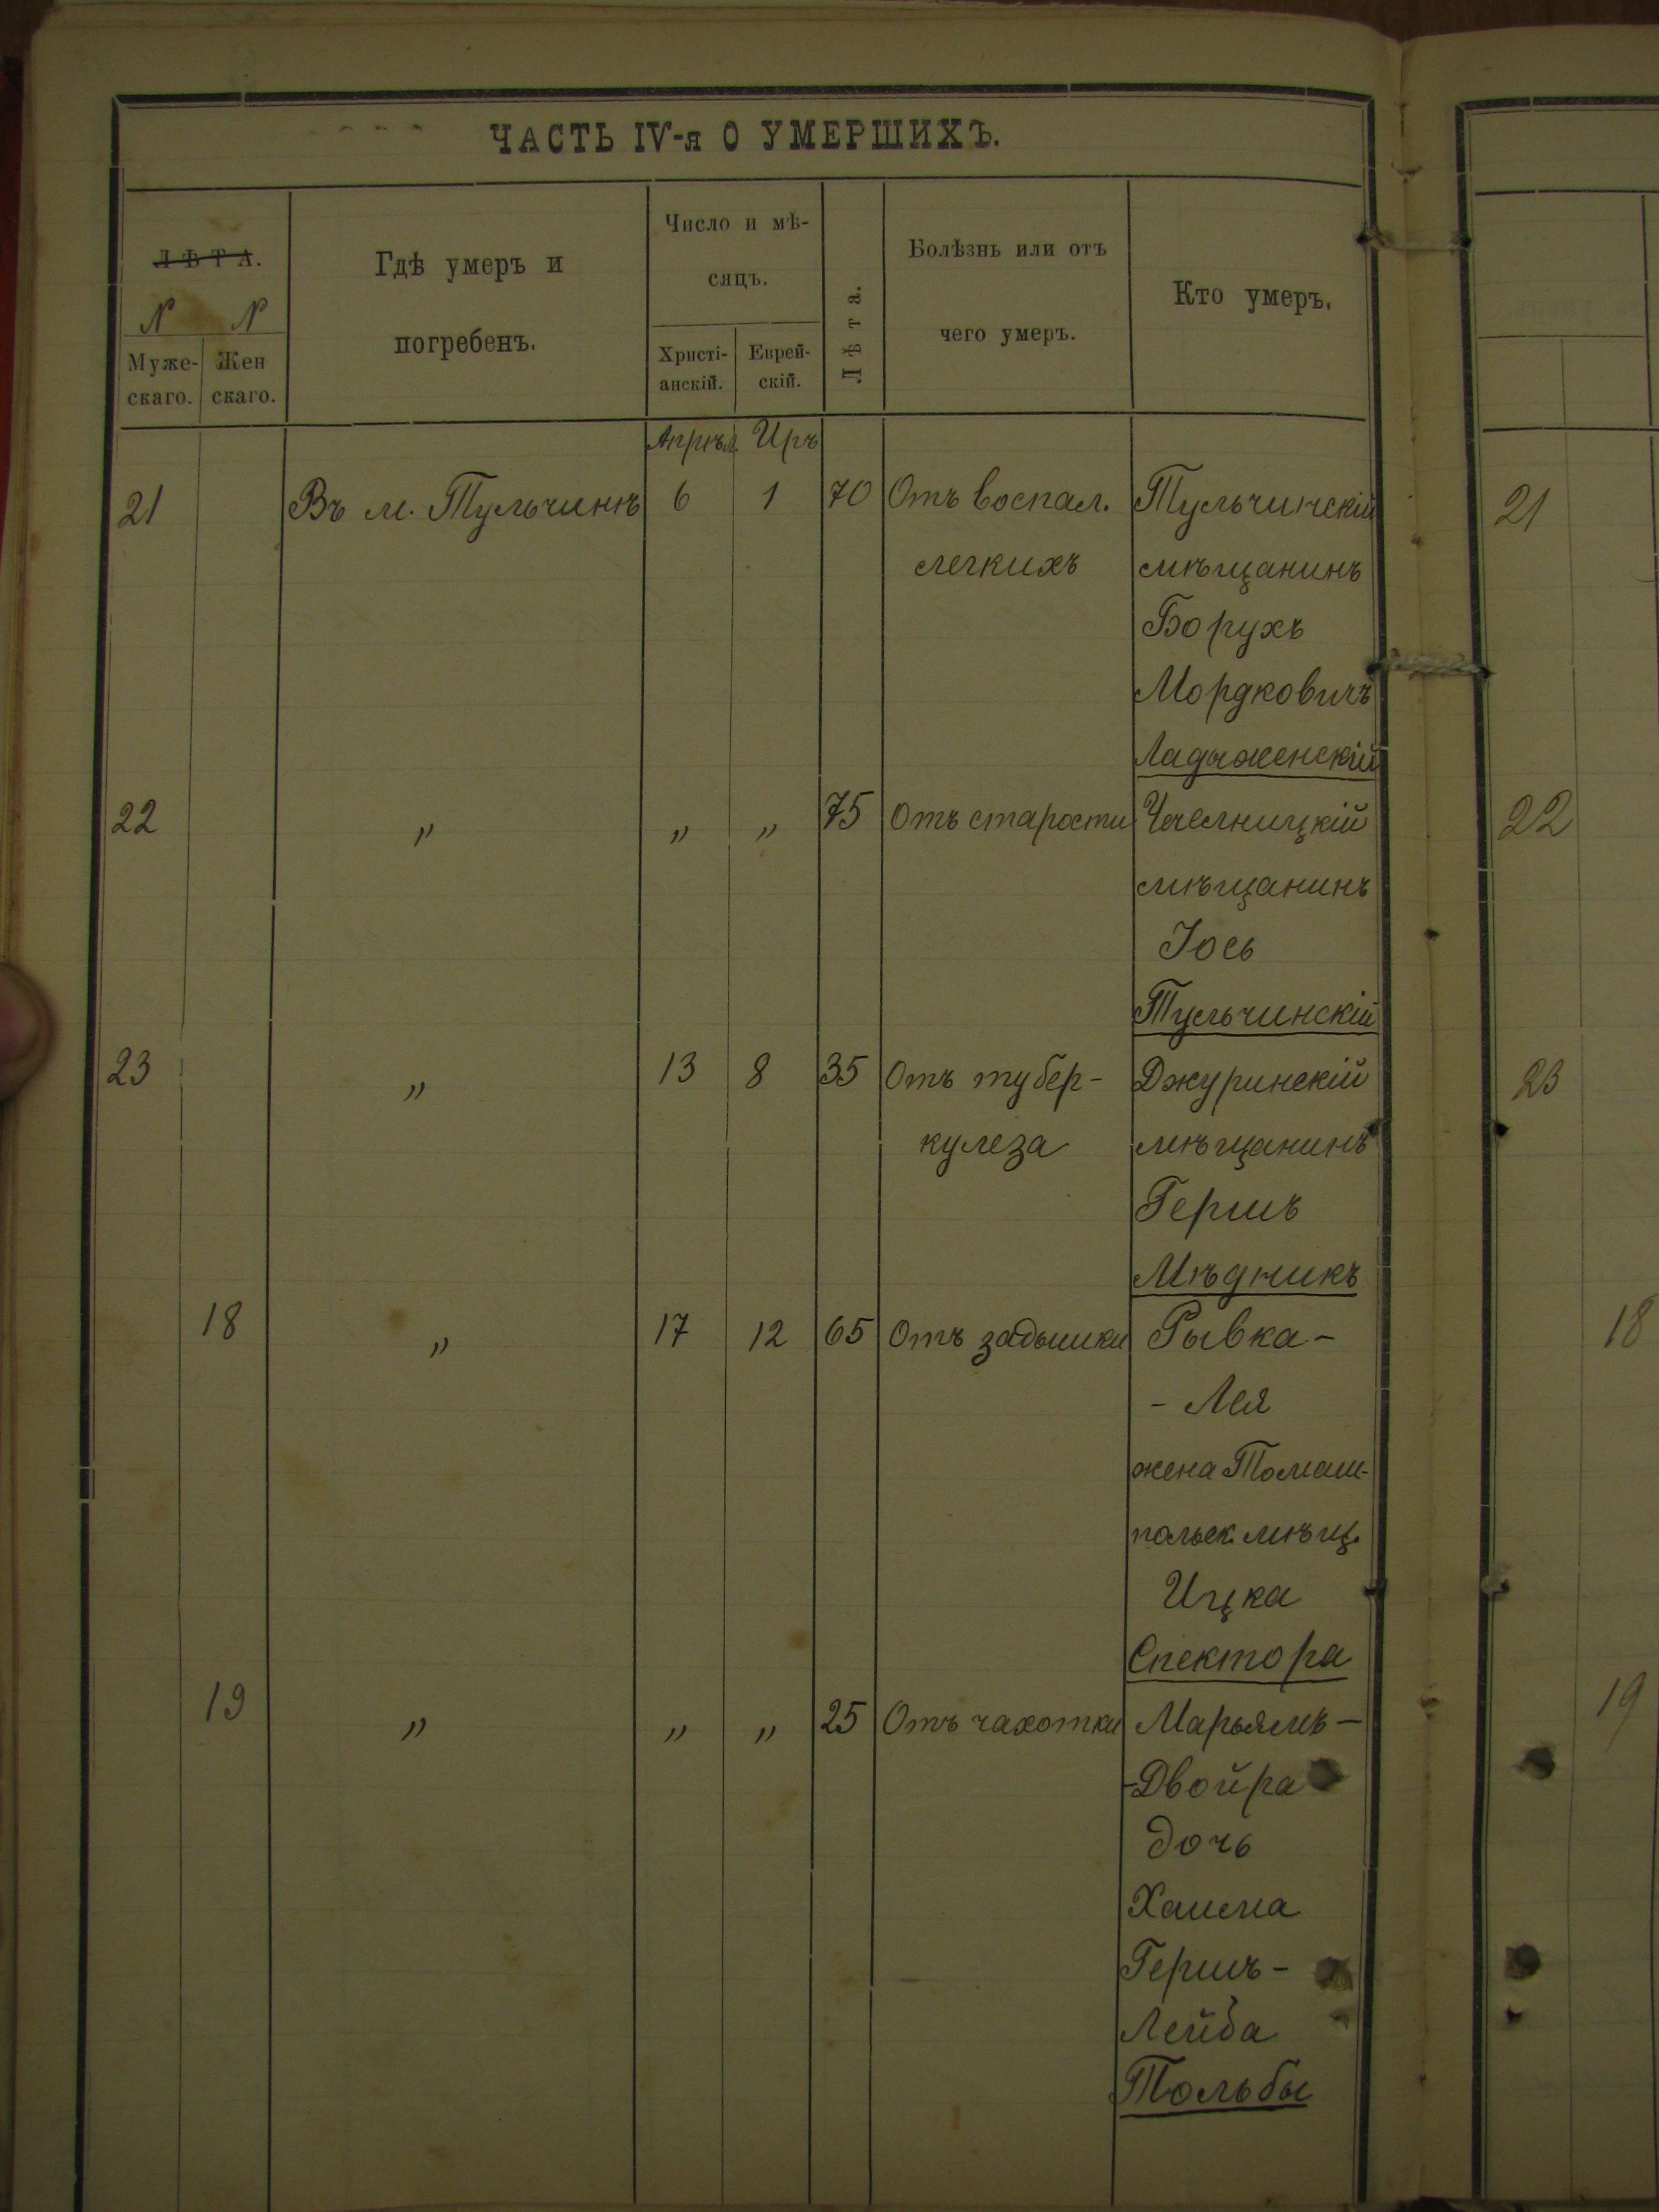 ЧАСТЬ IV-я О УМЕРШИХЪ.
ЛѢТА.
N N
Муже-
скаго.
Жен
скаго.
Гдѣ умеръ и
погребенъ.
Число и мѣ-
сяцъ.
Христі-
анскій.
Еврей-
скій.
Лѣта.
Болѣзнь или отъ
чего умеръ.
Кто умеръ.
Апрѣл. Иръ
21 Въ м. Тульчинѣ 6 1 70 Отъ воспал. Тульчинскій 21
легкихъ мѣщанинъ
Борухъ
Мордковичъ
Ладыженскій
22 " " " 75 Отъ старости Чечелницкій 22
мѣщанинъ
Іось
Тульчинскій
23 " 13 8 35 Отъ тубер- Джуринскій 23
кулеза мѣщанинъ
Гершъ
Мѣдникъ
18 " 17 12 65 Отъ задышки Рывка- 18
- Лея
жена Томаш-
польск. мѣщ.
Ицка
Спектора
19 " " " 25 Отъ чахотки Марьямъ- 19
-Двойра
дочь
Хаима
Гершъ-
Лейба
Тольбы